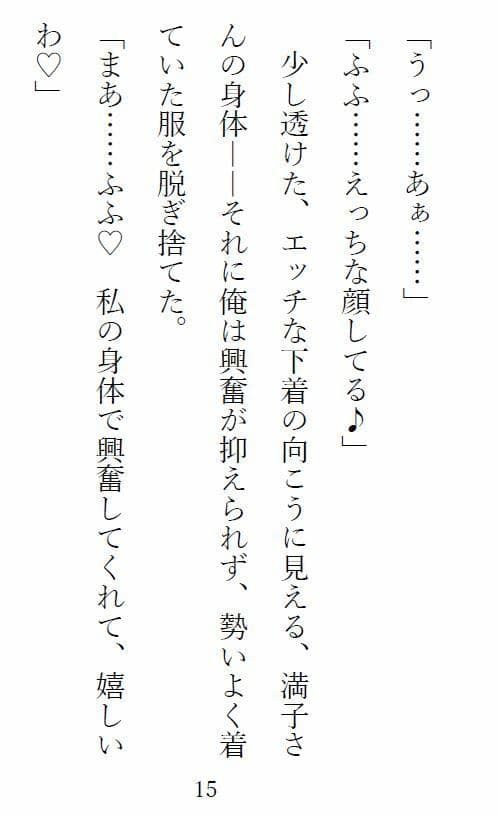 「うっ……あぁ……」
「ふふ……えっちな顔してる♪」
　少し透けた、エッチな下着の向こうに見える、満子さ
んの身体――それに俺は興奮が抑えられず、勢いよく着
ていた服を脱ぎ捨てた。
「まあ……ふふ♡　私の身体で興奮してくれて、嬉しい
わ♡」
15